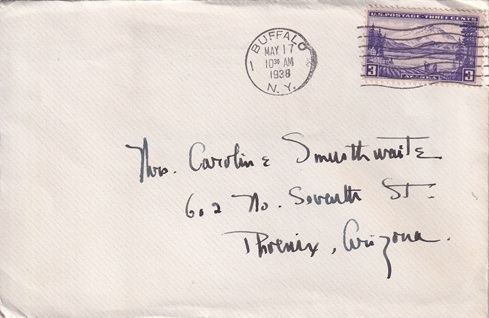 U.S. POSTAGE THREE CENTS
3 3
BUFFALO
1
MAY 17
10 30 AM
1938
N. Y.
Mrs. Caroline Smurthwaite
602 No. Seventh St.
Phoenix, Arizona.